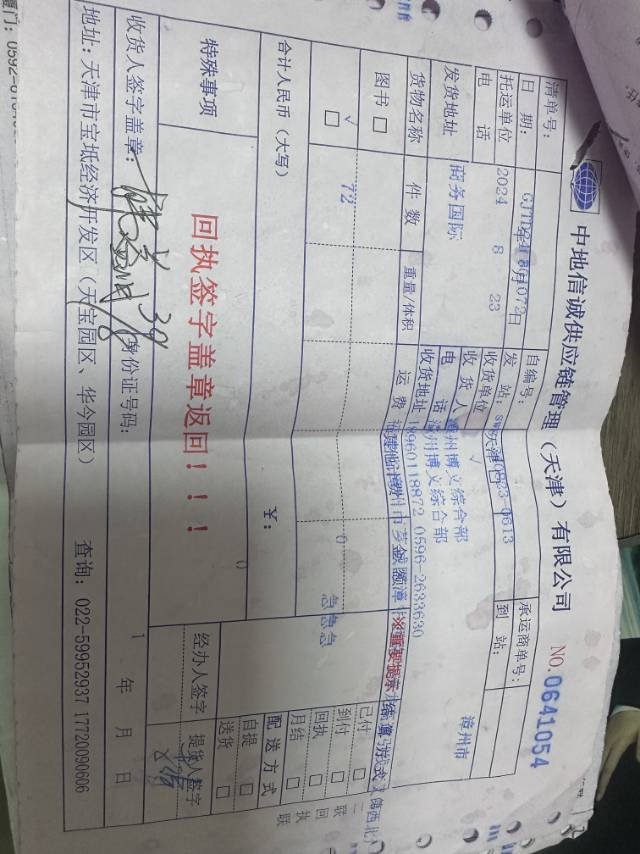 中地信诚供应链管理（天津）有限公司
NO.0641054
清单号：
自编号：
承运商单号：
日 期：
2024 年 8 月 23 日
发 站：
天津
到 站：
漳州市
托运单位
商务国际
收货单位
漳州博义综合部
电 话
收 货 人
漳州博义综合部
发货地址
电 话
18960118872 0596-2633630
收货地址
货物名称
件 数
重量/体积
运 费
※重要提示
结算方式
图书 □
√ □
72
0
急急急
已付 □
到付 □
回执 □
月结 □
合计人民币（大写）
￥：
0
配送方式
自提 □
送货 □
特殊事项
回执签字盖章返回！！！
经办人签字
提货人签字
收货人签字盖章：
身份证号码：
1 年 月 日
地址：天津市宝坻经济开发区（天宝园区、华今园区）
查询：022-59952937 17720090606
二联
回执联